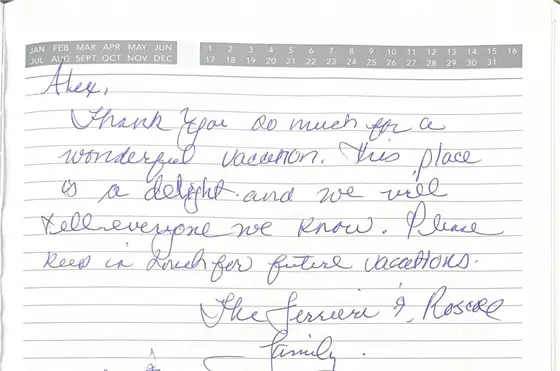 JAN FEB MAR APR MAY JUN 1 2 3 4 5 6 7 8 9 10 11 12 13 14 15 16
JUL AUG SEPT OCT NOV DEC 17 18 19 20 21 22 23 24 25 26 27 28 29 30 31
Alex,
Thank you so much for a
wonderful vacation. This place
is a delight and we will
tell everyone we know. Please
keep in touch for future vacations.
The Ferrieri & Roscoe
family.